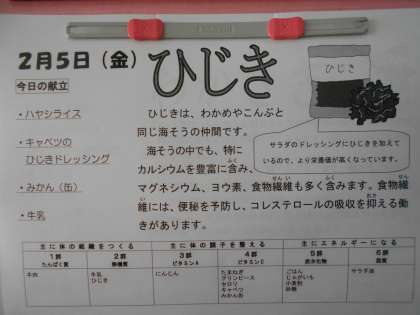 2月5日（金）
ひじき
今日の献立
・ハヤシライス
・キャベツの
ひじきドレッシング
・みかん（缶）
・牛乳
ひじきは、わかめやこんぶと
同じ海そうの仲間です。
海そうの中でも、特に
カルシウムを豊富に含み、
マグネシウム、ヨウ素、食物繊維も多く含みます。食物繊
維には、便秘を予防し、コレステロールの吸収を抑える働
きがあります。
ひじき
サラダのドレッシングにひじきを加えて
いるので、より栄養価が高くなっています。
主に体の組織をつくる 主に体の調子を整える 主にエネルギーになる
1群 2群 3群 4群 5群 6群
たんぱく質 無機質 ビタミンA ビタミンC 炭水化物 脂質
牛肉 牛乳 にんじん たまねぎ ごはん サラダ油
ひじき グリンピース じゃがいも
セロリ 小麦粉
キャベツ 砂糖
みかん缶